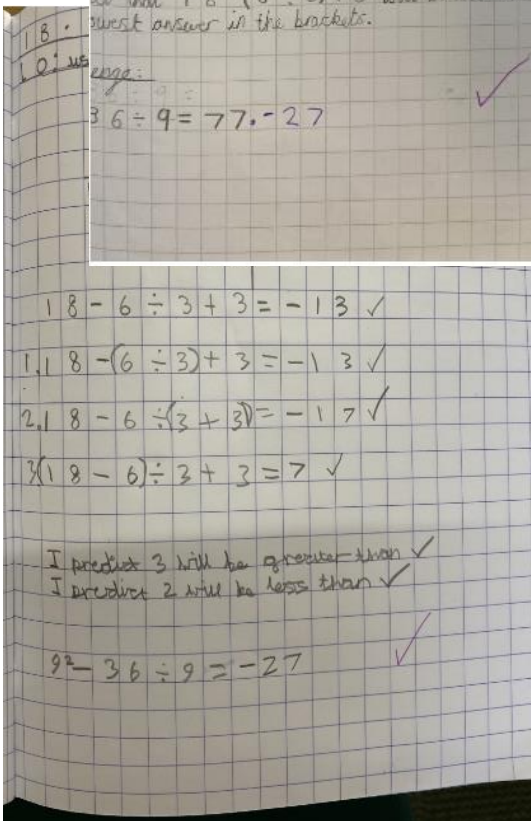 owest answer in the brackets.
18.
LO: us
enge:
36 ÷ 9 = 77.-27
18 - 6 ÷ 3 + 3 = -13 ✓
1. 18 - (6 ÷ 3) + 3 = -13 ✓
2. 18 - 6 ÷ (3 + 3) = -17 ✓
3 (18 - 6) ÷ 3 + 3 = 7 ✓
I predict 3 will be greater than ✓
I predict 2 will be less than ✓
9² - 36 ÷ 9 = -27